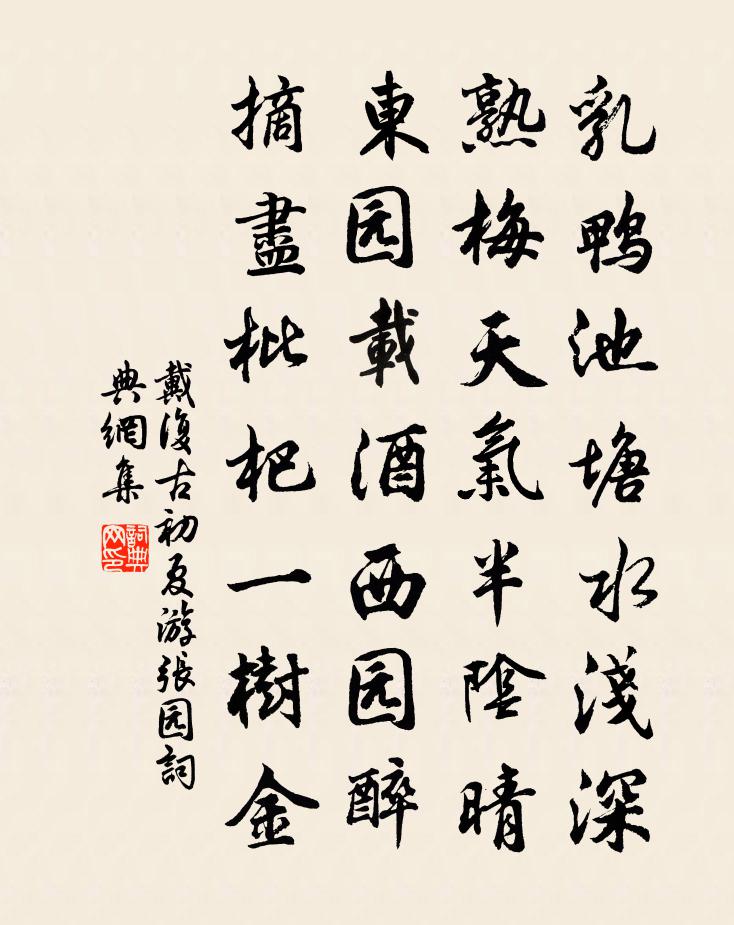 乳鸭池塘水淺深
熟梅天氣半陰晴
東园載酒西园醉
摘盡枇杷一樹金
戴復古初夏游張园詞
典網集
詞典网印